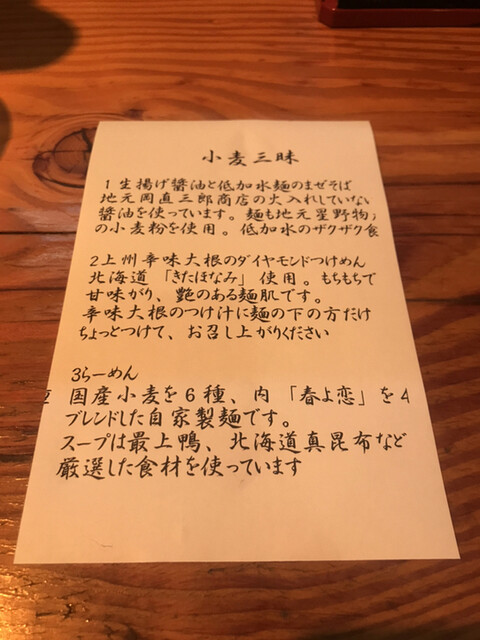 小麦三昧
1生揚げ醤油と低加水麺のまぜそば
地元岡直三郎商店の火入れしていない
醤油を使っています。麺も地元星野物
の小麦粉を使用。低加水のザクザク食
2上州辛味大根のダイヤモンドつけめん
北海道「きたほなみ」使用。もちもちで
甘味がり、艶のある麺肌です。
辛味大根のつけ汁に麺の下の方だけ
ちょっとつけて、お召し上がりください
3らーめん
国産小麦を6種、内「春よ恋」を4
ブレンドした自家製麺です。
スープは最上鴨、北海道真昆布など
厳選した食材を使っています